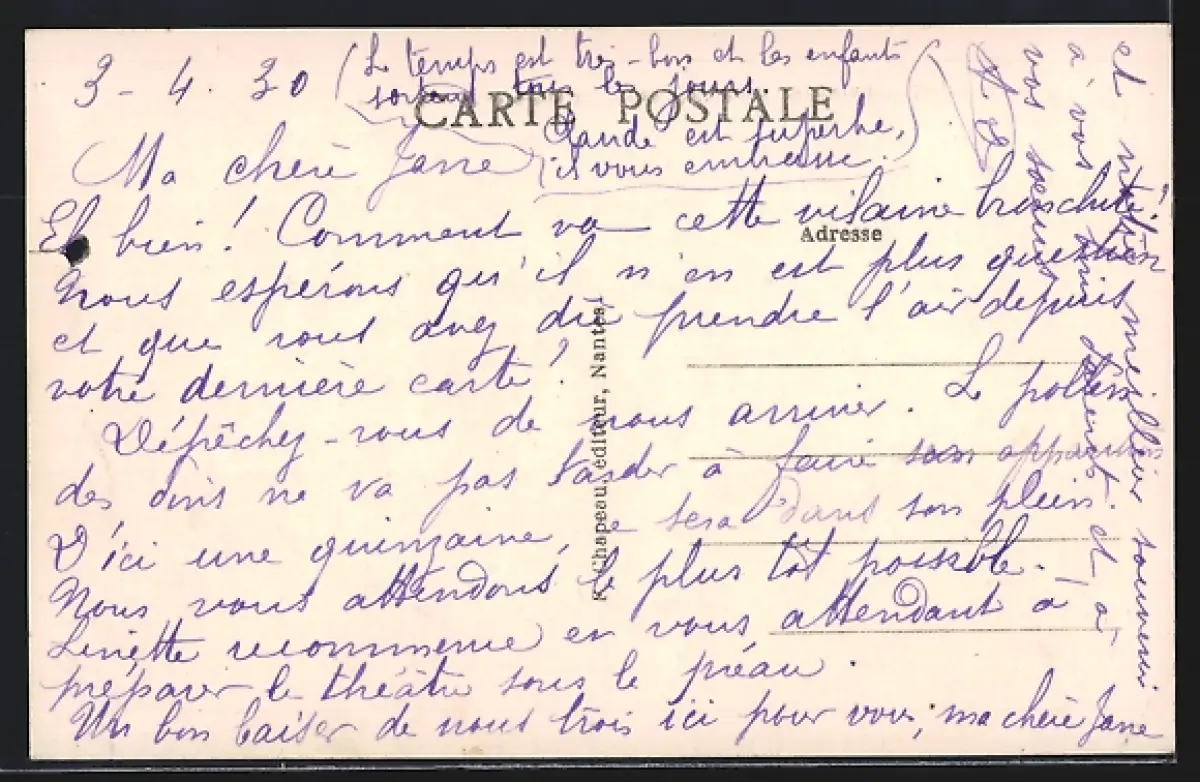 3 - 4 . 30
(Le temps est très-bon et les enfants
sortent tous les jours.
CARTE POSTALE
Claude est superbe,
il vous embrasse.)
Ma chère Jane
Eh bien! Comment va cette vilaine bronchite!
Adresse
Nous espérons qu'il n'en est plus question
et que vous avez dû prendre l'air depuis
votre dernière carte!
Dépêchez-vous de nous arriver. Le pollen
des pins ne va pas tarder à faire son apparition
D'ici une quinzaine, ce sera dans son plein.
Nous vous attendons le plus tôt possible. -
Linette recommence en vous attendant à
préparer le théâtre sous le préau.
Un bon baiser de nous trois ici pour vous, ma chère Jane
et notre meilleur souvenir
à vos parents et à
vos soeurs
Chapeau, éditeur, Nantes